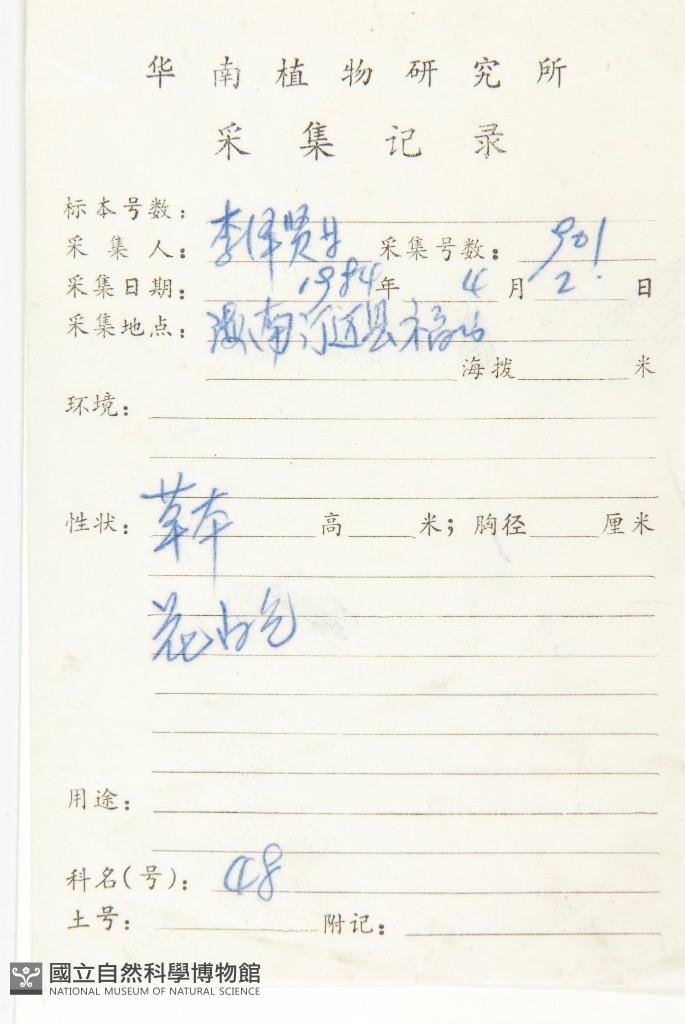 华南植物研究所
采集记录
标本号数：
采集人：李泽贤等 采集号数：901
采集日期：1984年4月2日
采集地点：海南 县福山
海拨 米
环境：
性状：草本 高 米；胸径 厘米
花白色
用途：
科名(号)：48
土号： 附记：
國立自然科學博物館
NATIONAL MUSEUM OF NATURAL SCIENCE